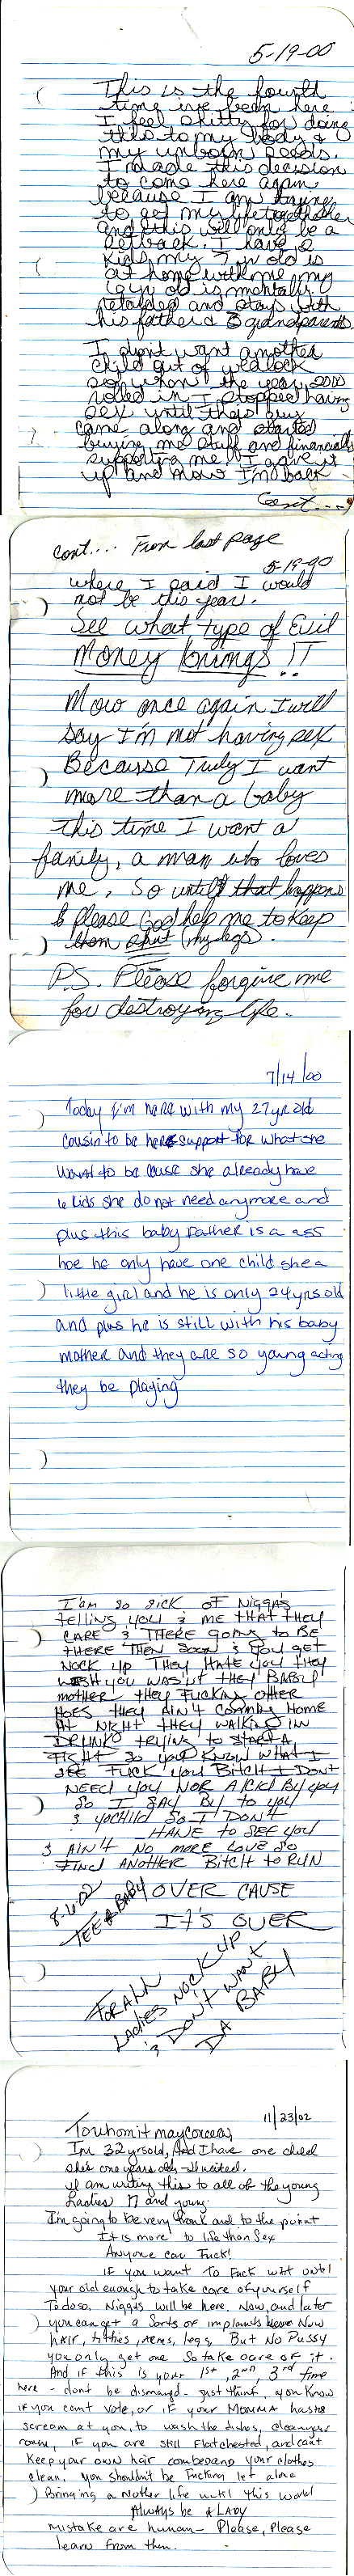 5-19-00
This is the fourth
time ive been here
I feel shitty for doing
this to my body &
my unborn seeds.
I made this decision
to come here again
because I am trying
to get my life together
and this will only be a
setback. I have 2
kids, my 7 yr old is
at home with me, my
yr old is mentally
retarded and stays with
his father & grandparents
I don't want another
child out of wedlock
so when the year 2000
rolled in I stopped having
sex until this guy
came along and started
buying me stuff and financially
supporting me. I gave it
up and now I'm back
Cont...
cont.... From last page
5-19-00
where I said I would
not be this year.
See what type of Evil
Money brings!!
Now once again I will
say I'm not having sex
Because Truly I want
more than a baby
this time I want a
family, a man who loves
me, So until that happens
please God help me to keep
them shut (my legs).
P.S. Please forgive me
for destroying life.
7/14/00
Today I'm here with my 27yr old
cousin to be her support for what she
want to be cause she already have
kids she do not need anymore and
plus this baby father is a ass
hoe he only have one child she a
little girl and he is only 24yrs old
and plus he is still with his baby
mother and they are so young acting
they be playing
I am so sick of Nigga's
telling you & me THAT THEY
CARE & THERE going to BE
THERE THEN soon & you get
NOCK up THEY HATE you they
WISH you WAS'NT THEY BABY
mother they FucKing OTHER
HOES they Ain't Coming Home
At NIGHT they WALKING IN
DRUNK TRYING to START A
FIGHT So you KNOW WHAT I
SEE FUCK you Bitch I DONT
NEED you NOR A KID By you
So I SAY By to you
& yo CHILD So I DON't
HAVE to SEE you
& AIN'4 NO MORE LOVE SO
FIND ANOTHER BITCH TO RUN
OVER CAUSE
IT'S OVER
8-6-02
TEE & BABY
FOR ALL
LADIES NOCK UP
& DON'T WANT
DA BABY
11/23/02
To whom it may concern,
Im 32 yrs old, And I have one child
she's one years old
I am writing this to all of the young
Ladies and young
I'm going to be very frank and to the point
It is more to life than Sex
Anyone can Fuck!
IF you want To Fuck wait until
your old enough to take care of yourself
To do so. Niggas will be here, Now, and later
you can get a Sorts of implants Now
hair, titties, legs, But No Pussy
you only get one So take care of it.
And if this is your 1st, 2nd, 3rd time
here - dont be dismayed - just think, you Know
if you cant vote, or IF your Momma has to
scream at you, to wash the dishes, clean your
room, IF you are still Flatchested, and cant
Keep your own hair combed and your clothes
clean, you shouldn't be Fucking let alone
Bringing a Nother life into this world
Always be A LADY
Mistake are human - Please, Please
learn from them.